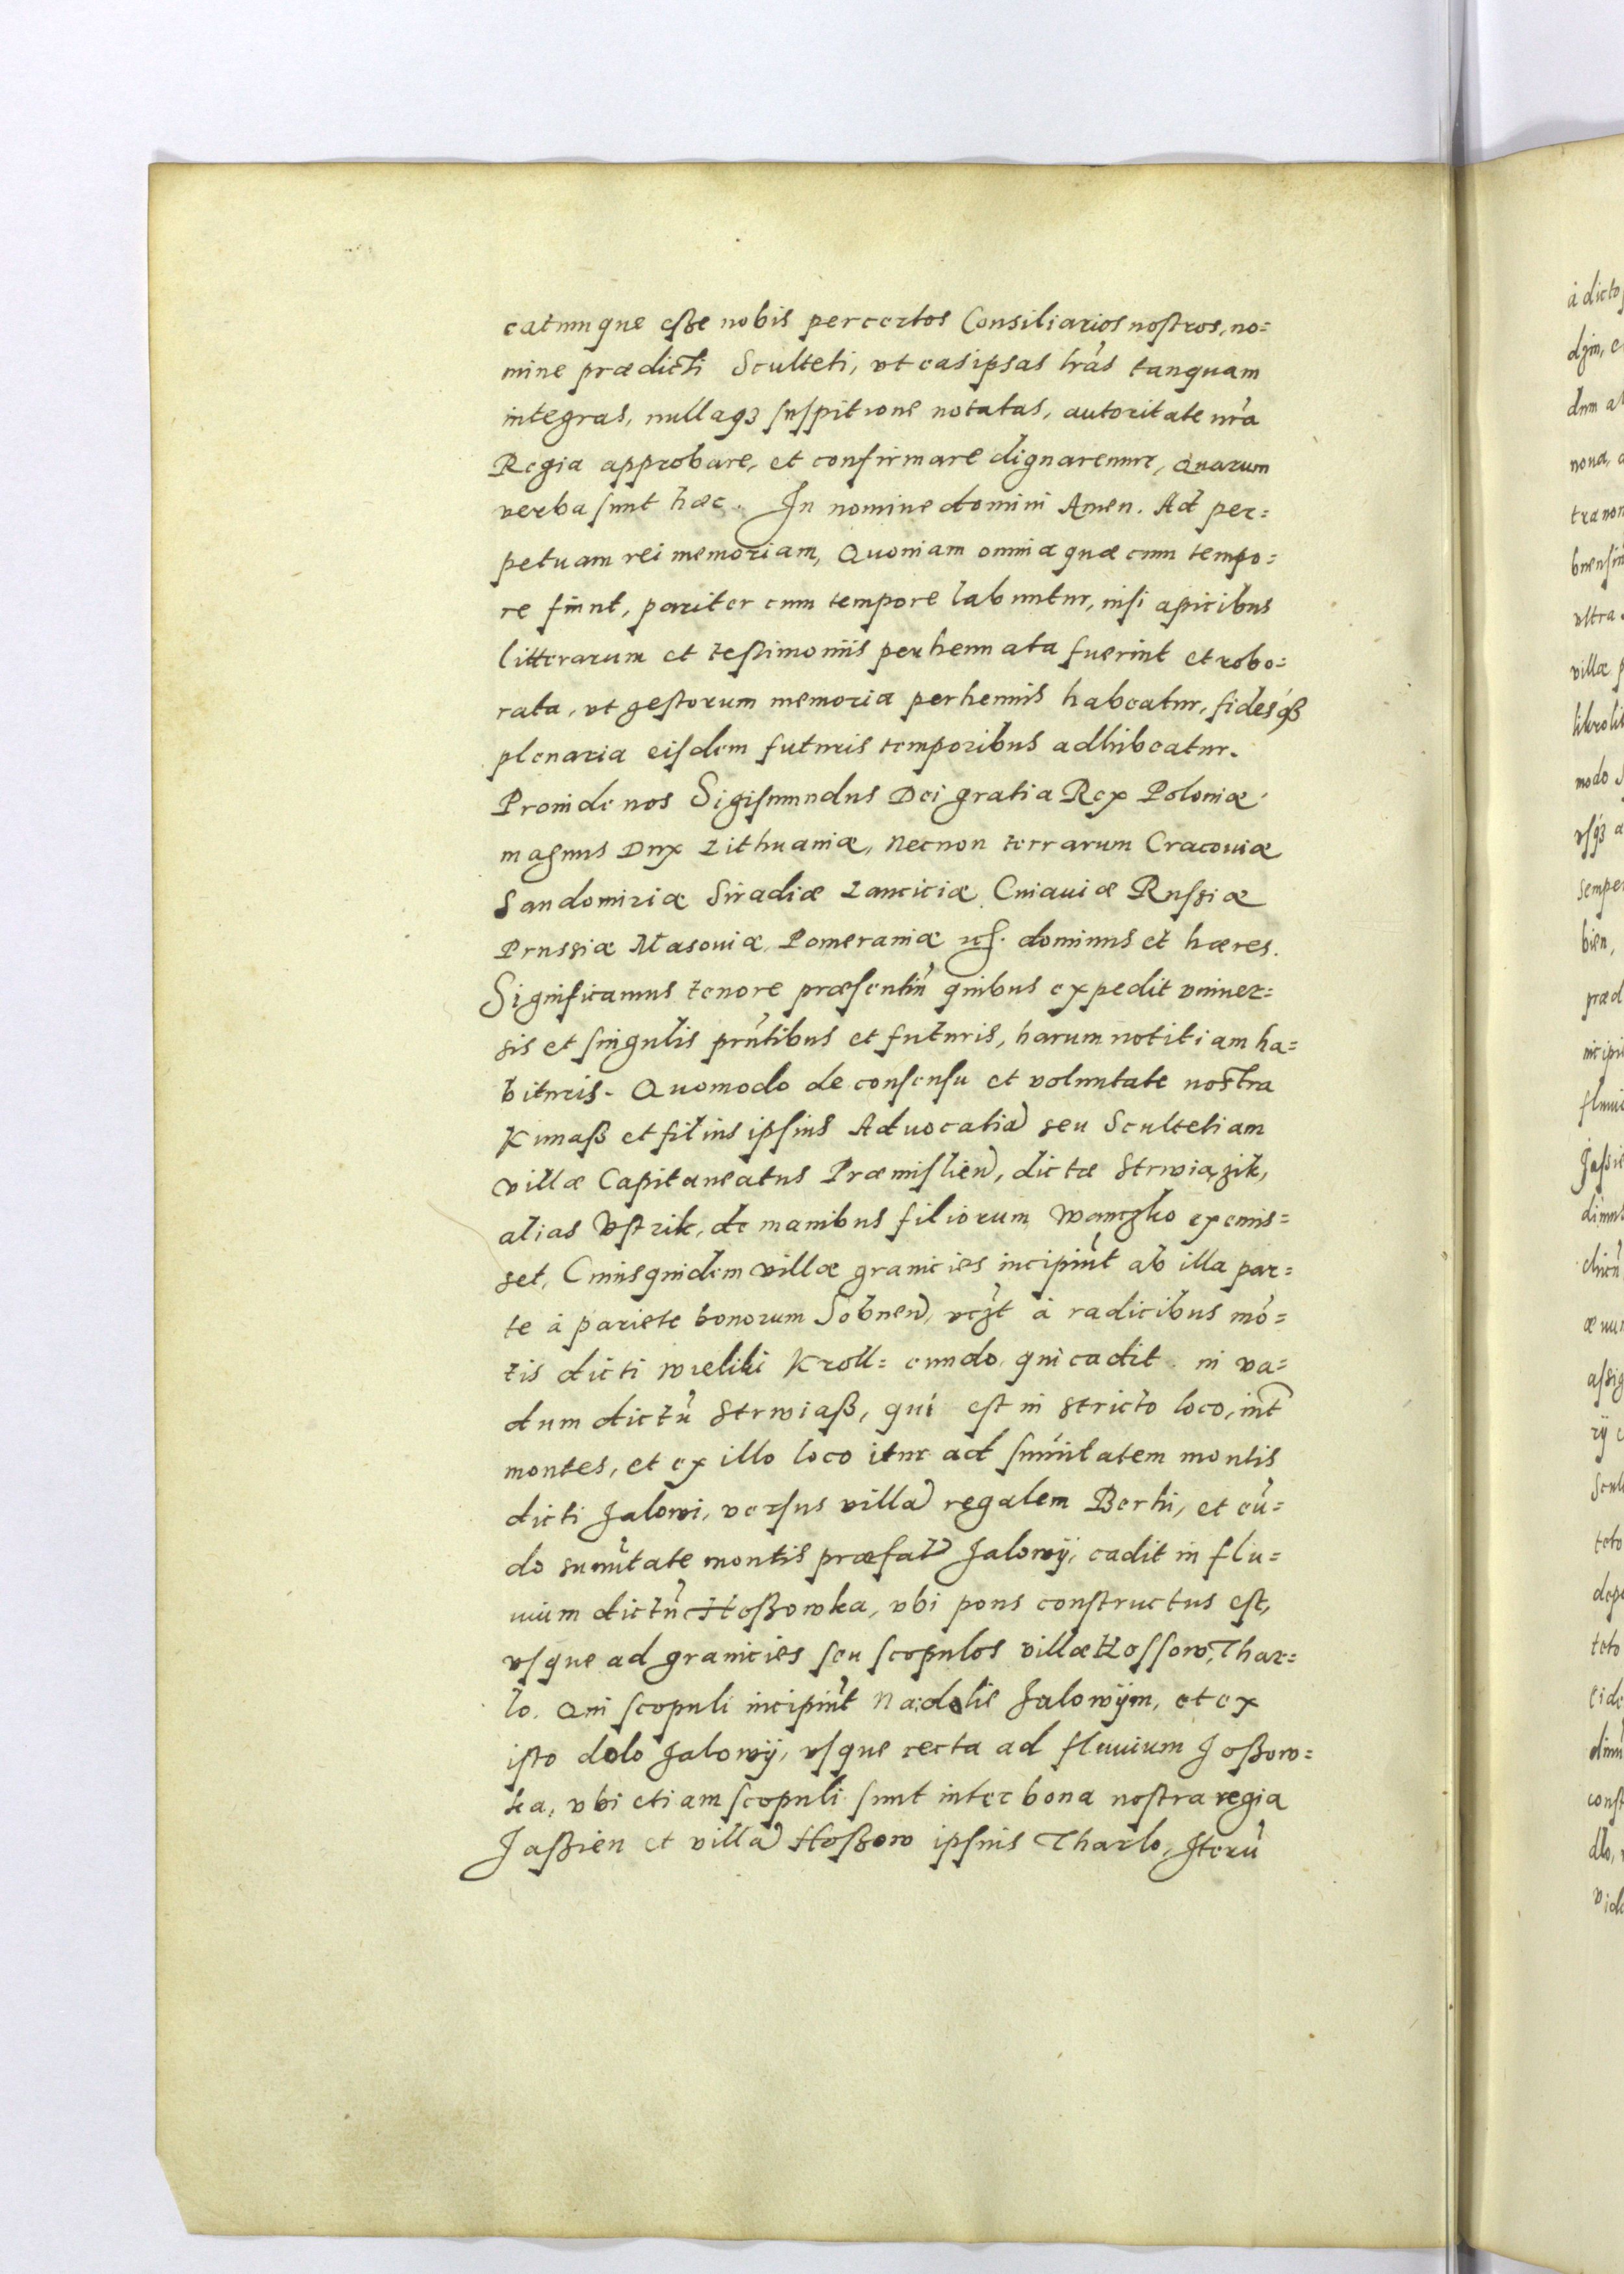 catumque eſße nobis per certos Consiliarios nostros, no=
mine prædicti Sculteti, vt eas ipsas lrãs tanquam
integras, nullaqȝ ſuſpitione notatas, autoritate nrã
Regia approbare, et confirmare dignaremur, Quarum
verba ſunt hæc. In nomine domini Amen. Ad per=
petuam rei memoriam, Quoniam omnia quæ cum tempo=
re fiunt, pariter cum tempore labuntur, niſi apicibus
litterarum et teſtimoniis perhennata fuerint et robo=
rata, vt geſtorum memoria perhennis habeatur, fidesqȝ
plenaria eiſdem futuris temporibus adhibeatur.
Proinde nos Sigiſmundus Dei gratia Rex Poloniæ
magnus Dux Lithuaniæ, necnon terrarum Cracouiæ
Sandomiriæ Siradiæ Lanciciæ Cuiauiæ Ruſsiæ
Prussiæ Masouiæ, Pomeraniæ ꝛcſ. dominus et hæres.
Significamus tenore præſentiũ quibus expedit vniuer=
sis et ſingulis prñtibus et futuris, harum notitiam ha=
bituris. Quomodo de conſenſu et voluntate noſtra
Kunaß et filius ipſius Aduocatiã seu Scultetiam
villæ Capitaneatus Præmiſlieñ, dictæ Strwiązik,
alias Vſtrik, de manibus filiorum Wanczko exemis=
set, Cuiusquidem villæ granicies incipiũt ab illa par=
te à pariete bonorum Sobneñ, vcȝt à radicibus mõ=
tis dicti wieliki Kroll= eundo, qui cadit in va=
dum dictũ Strwiaß, qui eſt in stricto loco, int̃
montes, et ex illo loco itur ad ſum̃itatem montis
dicti Jalowi, verſus villã regalem Berhi, et eũ=
do sum̃itate montis præfati Jalowÿ, cadit in flu=
uium dictũ Hoßowka, vbi pons conſtructus eſt,
vſque ad granicies ſeu ſcopulos villæ Hoſſow, Thar=
lo. Qui ſcopuli incipiũt Na dolie Jalowÿm, et ex
iſto dolo Jalowÿ, vſque recta ad fluuium Joßow=
ka, vbi etiam ſcopuli ſunt inter bona noſtra regia
Jaßien et villã Hoßow ipſius Tharlo, Iterũ